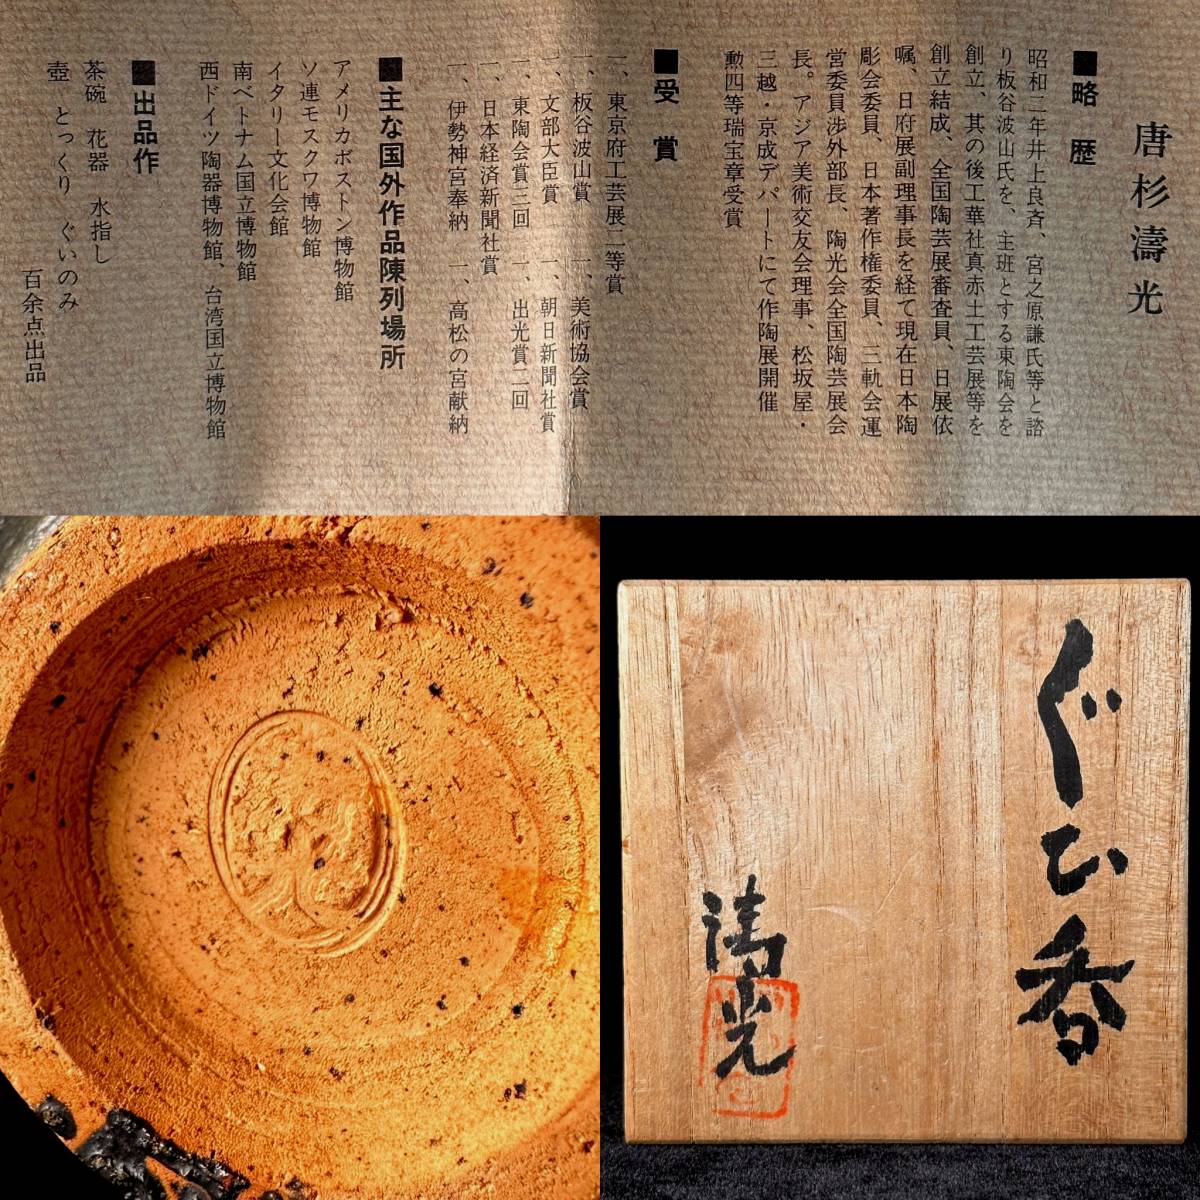 唐杉濤光
■略歴
昭和二年井上良斉、宮之原謙氏等と諮
り板谷波山氏を、主班とする東陶会を
創立、其の後工華社真赤土工芸展等を
創立結成、全国陶芸展審査員、日展依
嘱、日府展副理事長を経て現在日本陶
彫会委員、日本著作権委員、三軌会運
営委員渉外部長、陶光会全国陶芸展会
長。アジア美術交友会理事、松坂屋・
三越・京成デパートにて作陶展開催
勲四等瑞宝章受賞
■受賞
一、東京府工芸展二等賞
一、板谷波山賞 一、美術協会賞
一、文部大臣賞 一、朝日新聞社賞
一、東陶会賞三回 一、出光賞二回
一、日本経済新聞社賞
一、伊勢神宮奉納 一、高松の宮献納
■主な国外作品陳列場所
アメリカボストン博物館
ソ連モスクワ博物館
イタリー文化会館
南ベトナム国立博物館
西ドイツ陶器博物館、台湾国立博物館
■出品作
茶碗 花器 水指し
壺 とっくり ぐいのみ
百余点出品
ぐひ呑
濤光